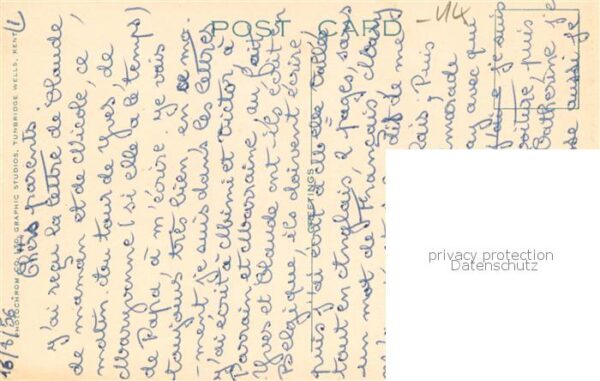 POST CARD
-414
PHOTOCHROM CO. LTD. GRAPHIC STUDIOS, TUNBRIDGE WELLS, KENT
GREETINGS
16/8/56
Chers parents.
J'ai reçu la lettre de Claude,
de maman et de Nicole, ce
matin. Au tour de Yves, de
Maryvonne (si elle a le temps)
de Papa à m'écrire. Je vais
toujours très bien, en ce mo-
-ment je suis dans les lettres
j'ai écrit à Mimi et Victor à
Parrain et Marraine, au fait
Yves et Claude ont-ils écrit en
Belgique, ils doivent écrire,
puis j'ai écrit à
tout en Anglais 2 pages, sans
un mot de Français, Mais
dif de me
Puis
camarade
avec qui
je suis
voiture, puis
Catherine, je
aussi je
privacy protection
Datenschutz